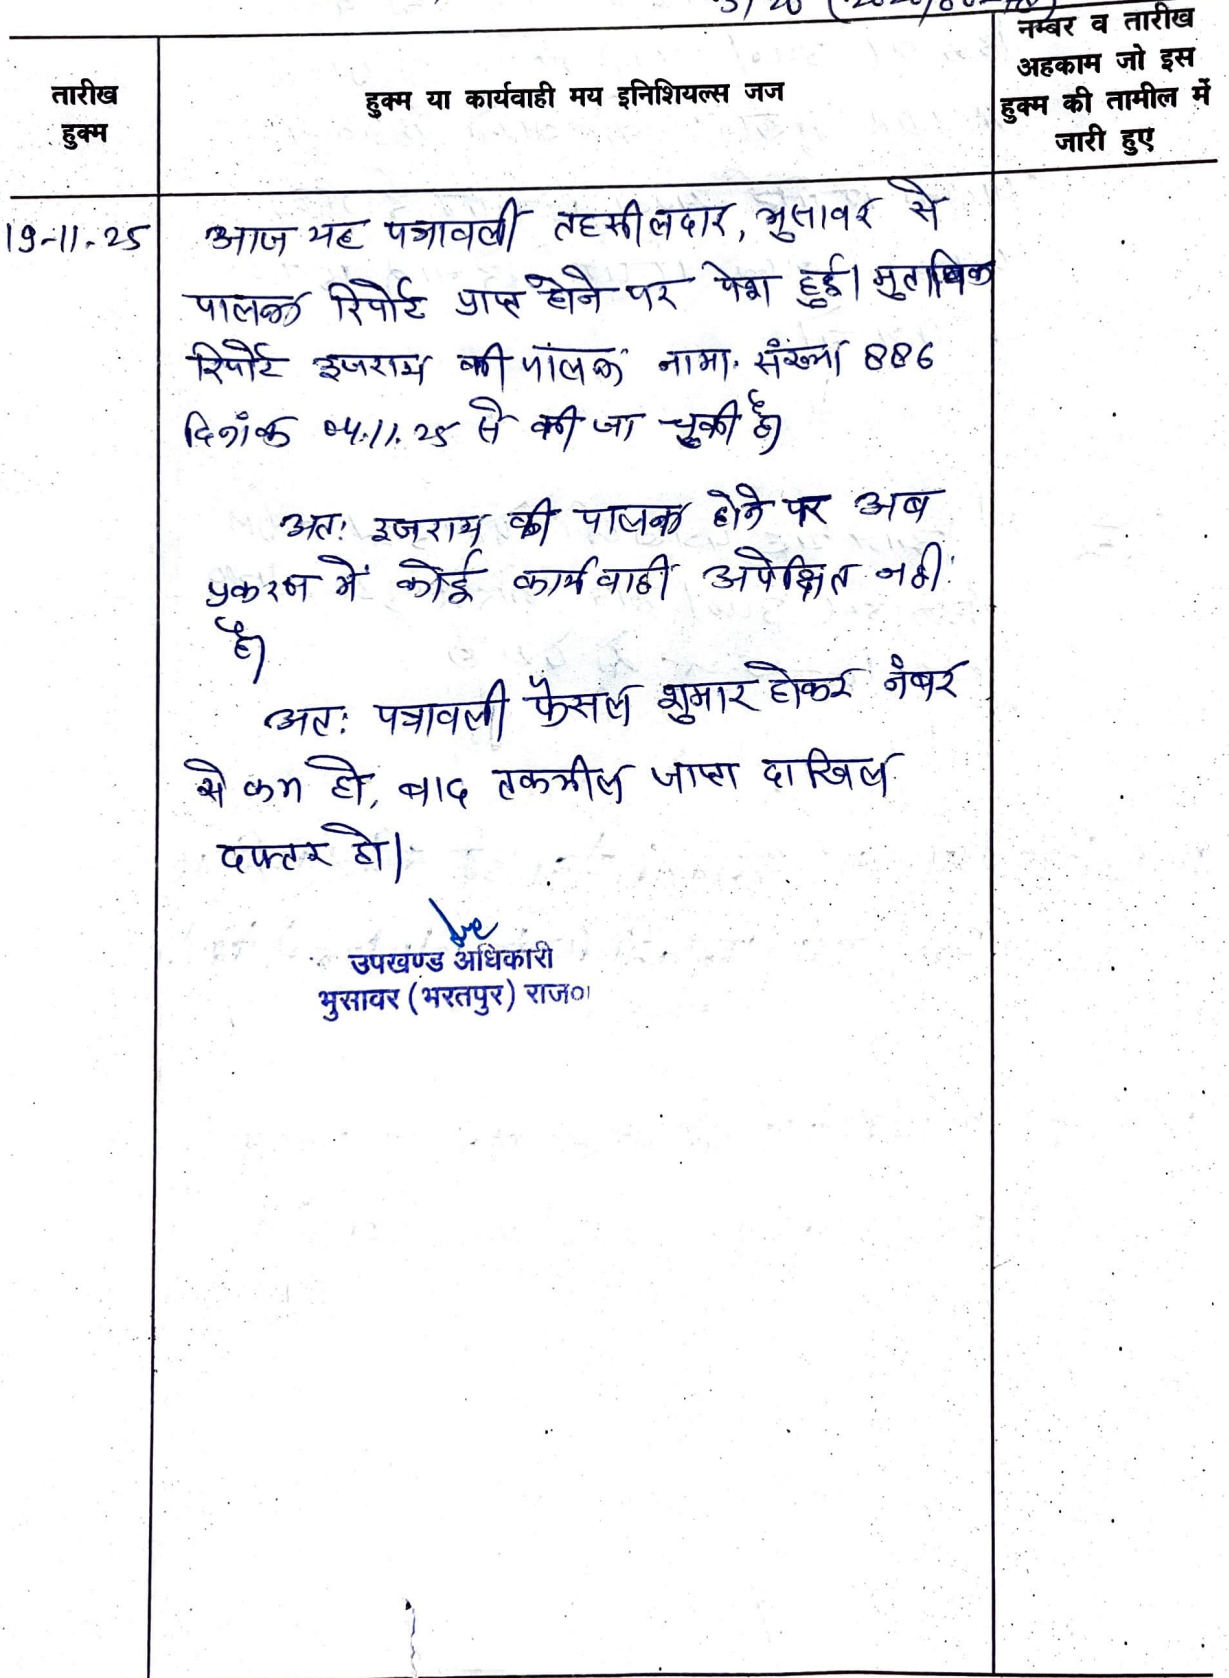 तारीख
हुक्म
हुक्म या कार्यवाही मय इनिशियल्स जज
नम्बर व तारीख
अहकाम जो इस
हुक्म की तामील में
जारी हुए
19-11-25
आज यह पत्रावली तहसीलदार, भुसावर से
पालना रिपोर्ट प्राप्त होने पर पेश हुई। मुताबिक
रिपोर्ट इजराय की पालना नामा. संख्या 886
दिनांक 04.11.25 से की जा चुकी है।
अतः इजराय की पालना होने पर अब
प्रकरण में कोई कार्यवाही अपेक्षित नहीं
है।
अतः पत्रावली फैसल शुमार होकर नंबर
से कम हो, बाद तकमील जाप्ता दाखिल
दफ्तर हो।
उपखण्ड अधिकारी
भुसावर (भरतपुर) राज०